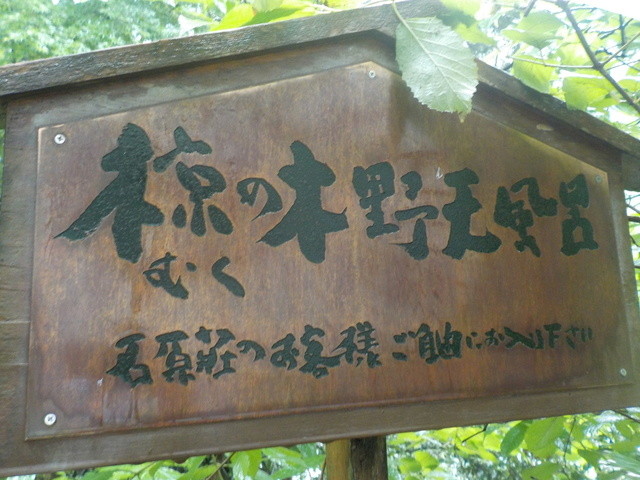 椋の木野天風呂
むく
石原荘のお客様ご自由にお入り下さい